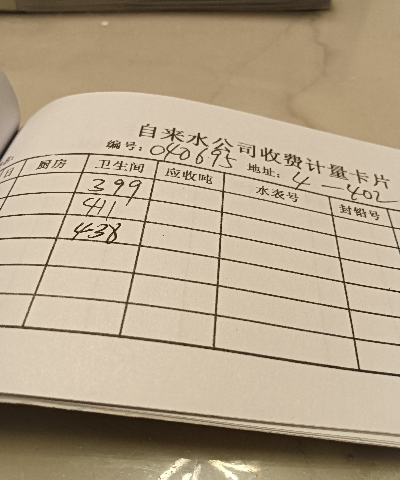 自来水公司收费计量卡片
编号：040695 地址：4-402
厨房 卫生间 应收吨 水表号 封铅号
399
411
438